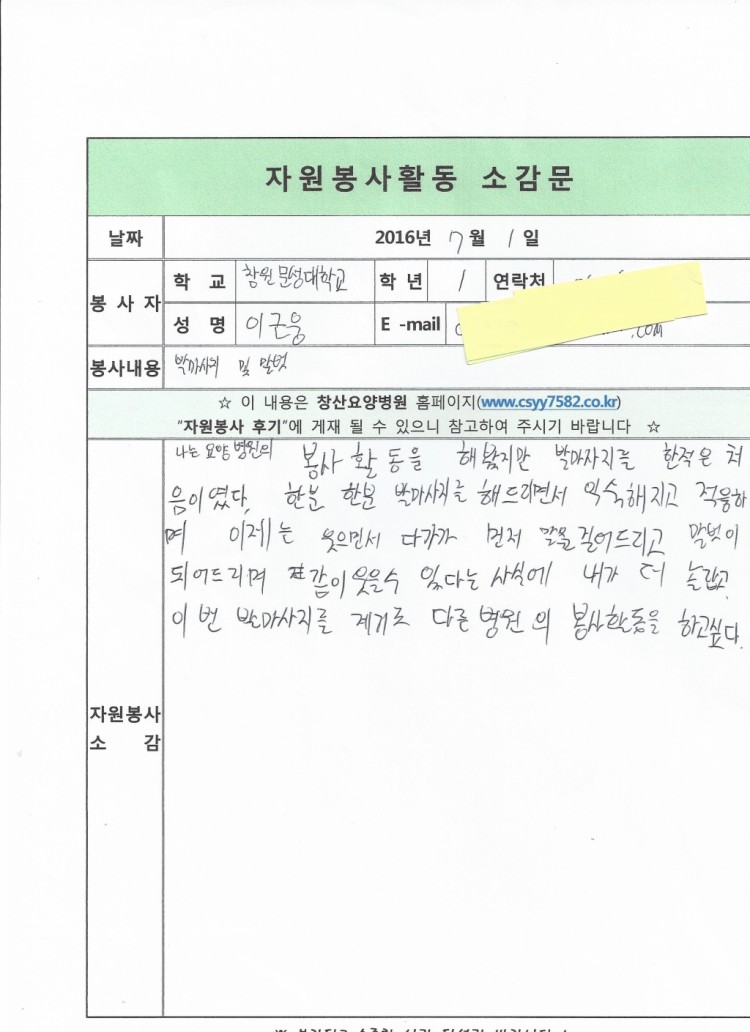 자원봉사활동 소감문
날짜 2016년 7월 1일
봉사자 학 교 창원문성대학교 학 년 1 연락처
성 명 이근웅 E -mail .com
봉사내용 발마사지 및 말벗
☆ 이 내용은 창산요양병원 홈페이지(www.csyy7582.co.kr)
"자원봉사 후기"에 게재 될 수 있으니 참고하여 주시기 바랍니다 ☆
나는 요양병원의 봉사활동을 해봤지만 발마사지를 한적은 처
음이였다. 한분 한분 발마사지를 해드리면서 익숙해지고 적응하
며 이제는 웃으면서 다가가 먼저 말을 걸어드리고 말벗이
되어드리며 공감이 웃을수 있다는 사실에 내가 더 놀랍고
이번 발마사지를 계기로 다른 병원의 봉사활동을 하고싶다.
자원봉사
소 감